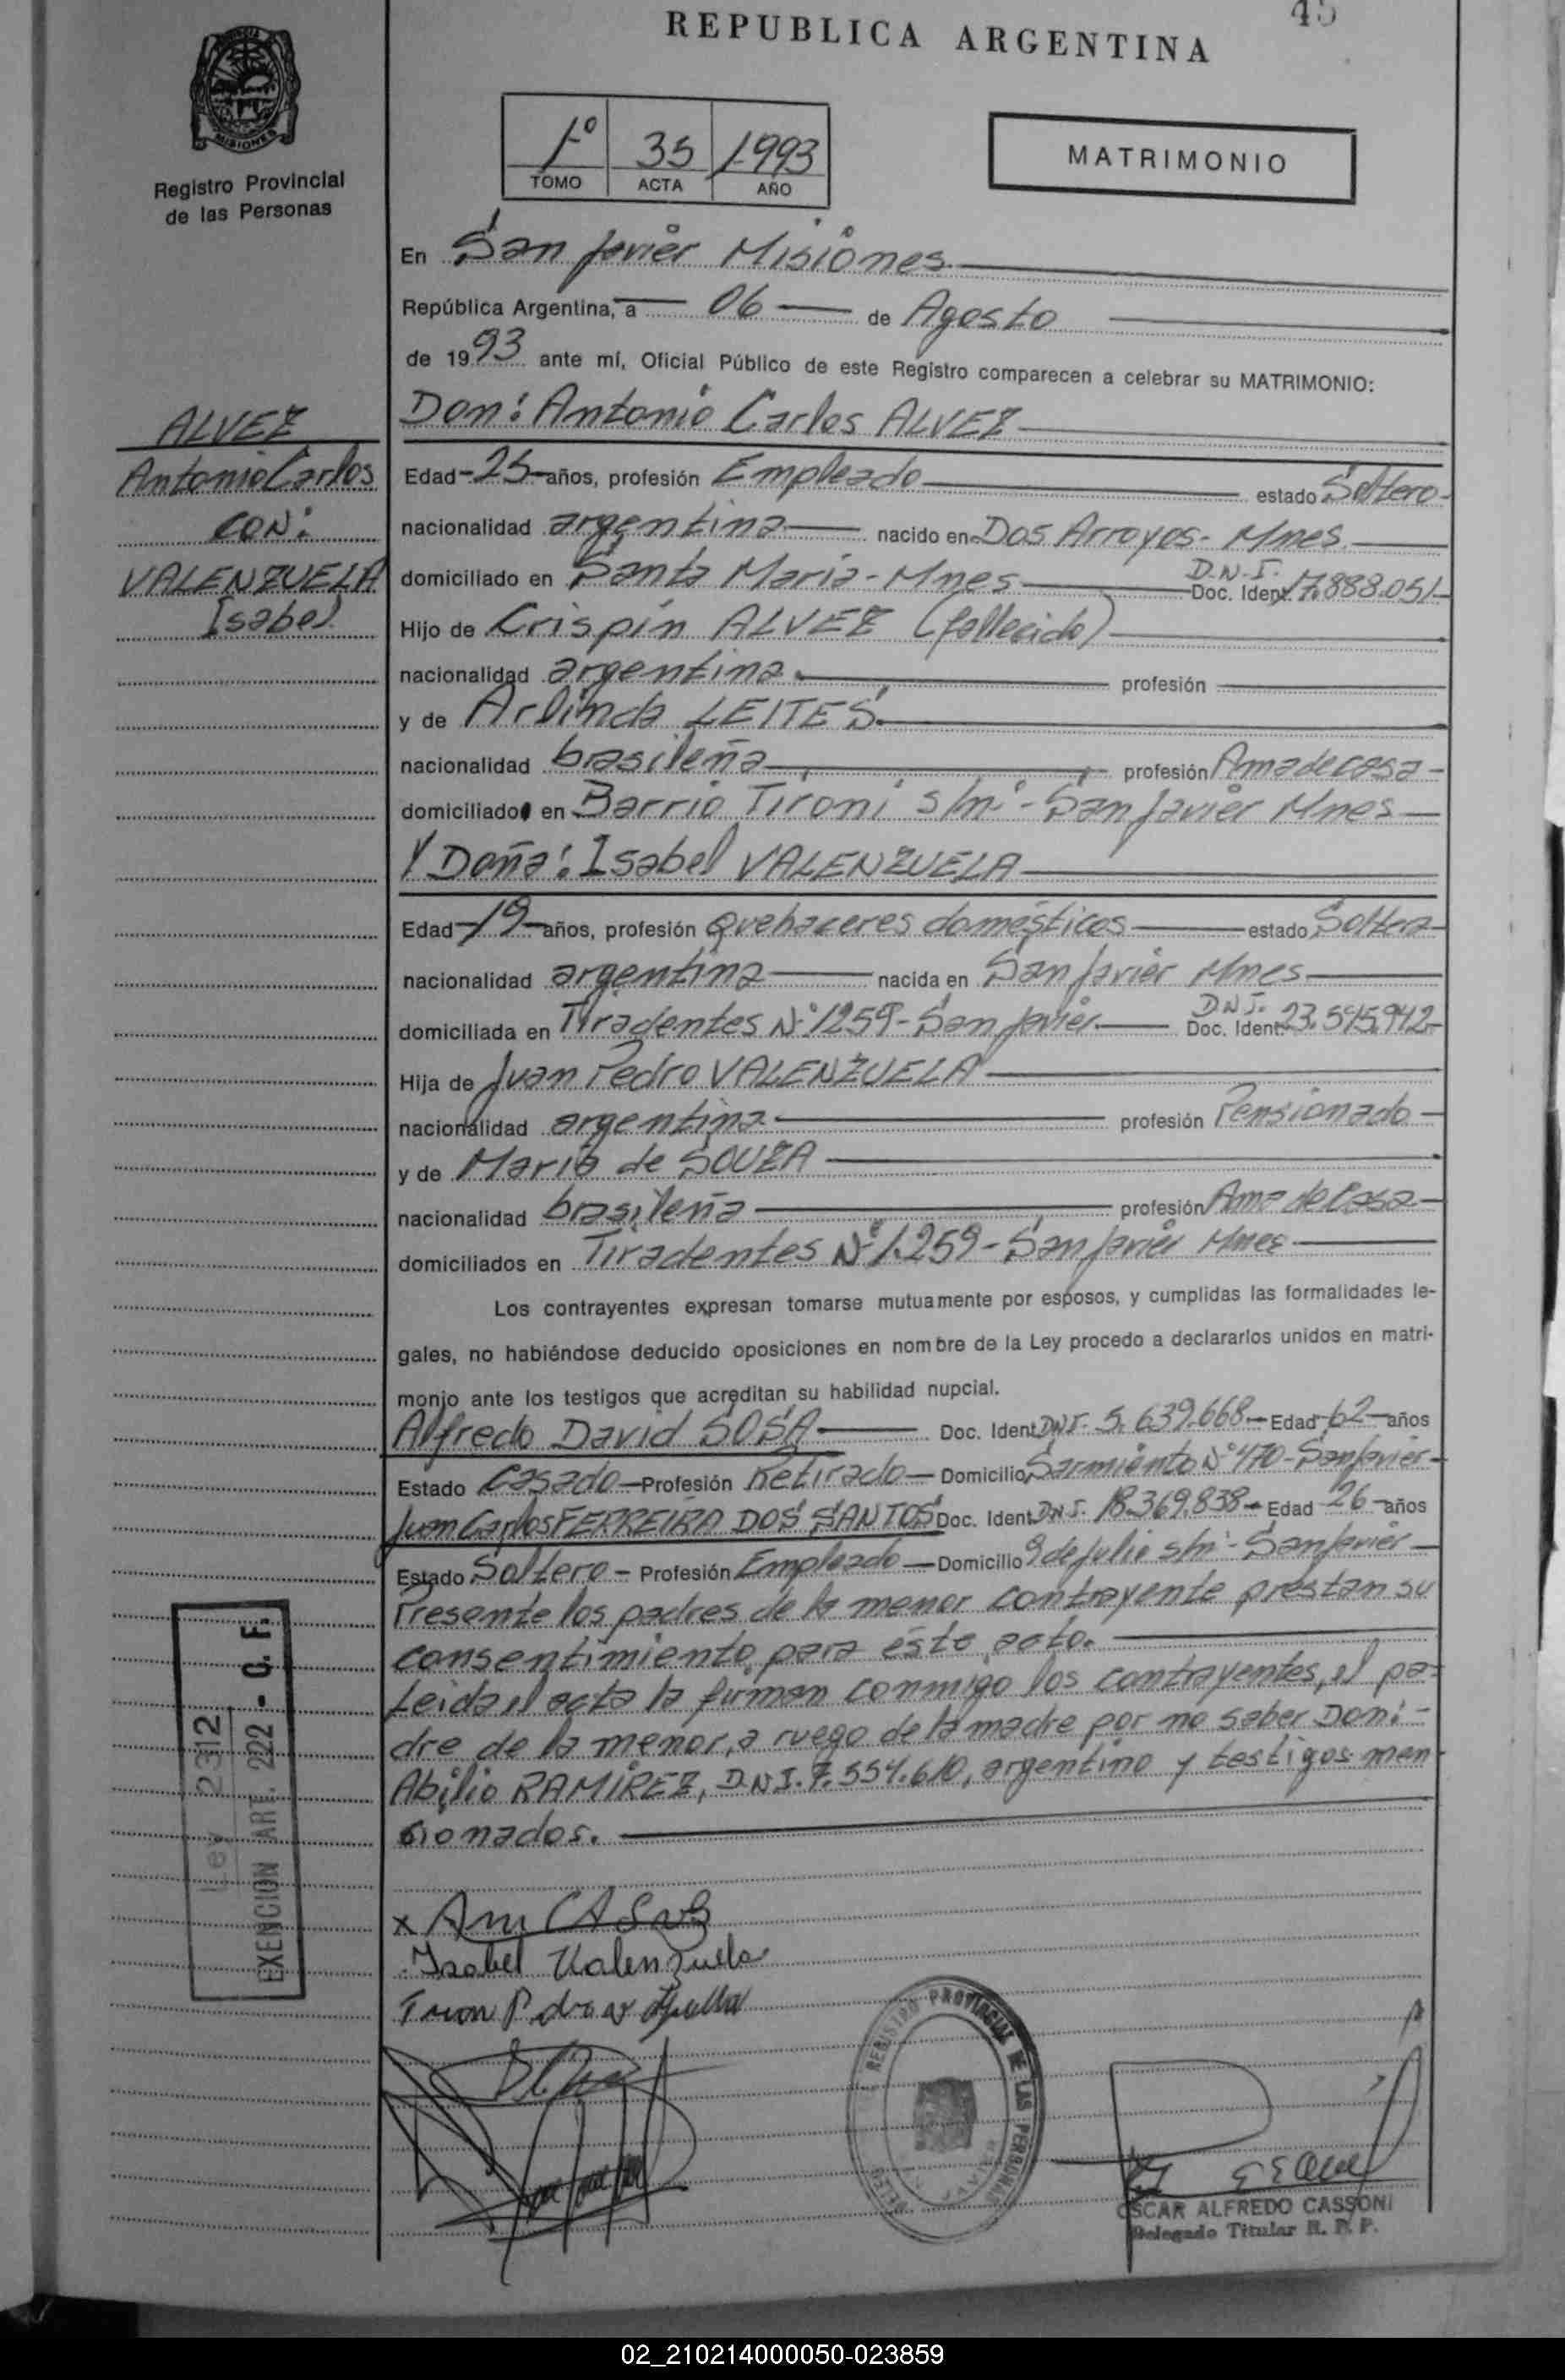 REPUBLICA ARGENTINA
45
MISIONES
Registro Provincial
de las Personas
1º 35 1993
TOMO ACTA AÑO
MATRIMONIO
En San Javier Misiones
República Argentina, a 06 de Agosto
de 1993 ante mí, Oficial Público de este Registro comparecen a celebrar su MATRIMONIO:
Don: Antonio Carlos ALVEZ
ALVEZ
Antonio Carlos
CON:
VALENZUELA
Isabel
Edad -25- años, profesión Empleado estado Soltero-
nacionalidad argentina nacido en Dos Arroyos- Mnes.
domiciliado en Santa María-Mnes D.N.I. Doc. Ident. 17.888.051-
Hijo de Crispín ALVEZ (fallecido)
nacionalidad argentina profesión
y de Arlinda LEITES.
nacionalidad brasileña profesión Ama de casa-
domiciliado en Barrio Tironi s/nº-San Javier Mnes
Y Doña: Isabel VALENZUELA
Edad -19- años, profesión Quehaceres domésticos estado Soltera
nacionalidad argentina nacida en San Javier Mnes
domiciliada en Tiradentes Nº1259-San Javier. D.N.I. Doc. Ident. 23.545.942-
Hija de Juan Pedro VALENZUELA
nacionalidad argentina profesión Pensionado
y de María de SOUZA
nacionalidad brasileña profesión Ama de Casa
domiciliados en Tiradentes Nº1.259-San Javier Mnes
Los contrayentes expresan tomarse mutuamente por esposos, y cumplidas las formalidades le-
gales, no habiéndose deducido oposiciones en nombre de la Ley procedo a declararlos unidos en matri-
monio ante los testigos que acreditan su habilidad nupcial.
Alfredo David SOSA Doc. Ident. DNI. 5.639.668.- Edad -62- años
Estado Casado- Profesión Retirado- Domicilio Sarmiento Nº470-San Javier-
Juan Carlos FERREIRA DOS SANTOS Doc. Ident. DNI. 18.369.838- Edad -26- años
Estado Soltero- Profesión Empleado- Domicilio 9 de Julio s/nº-San Javier-
Presente los padres de la menor contrayente prestan su
consentimiento para éste acto.
Leida el acta la firman conmigo los contrayentes, el pa-
dre de la menor, a ruego de la madre por no saber Don:-
Abilio RAMIREZ, D.N.I. 7.554.610, argentino y testigos men
cionados.
Ley 2312
EXENCION ART. 222 - C. F.
Isabel Valenzuela
REGISTRO PROVINCIAL DE LAS PERSONAS
OSCAR ALFREDO CASSONI
Delegado Titular R. P. P.
02_210214000050-023859